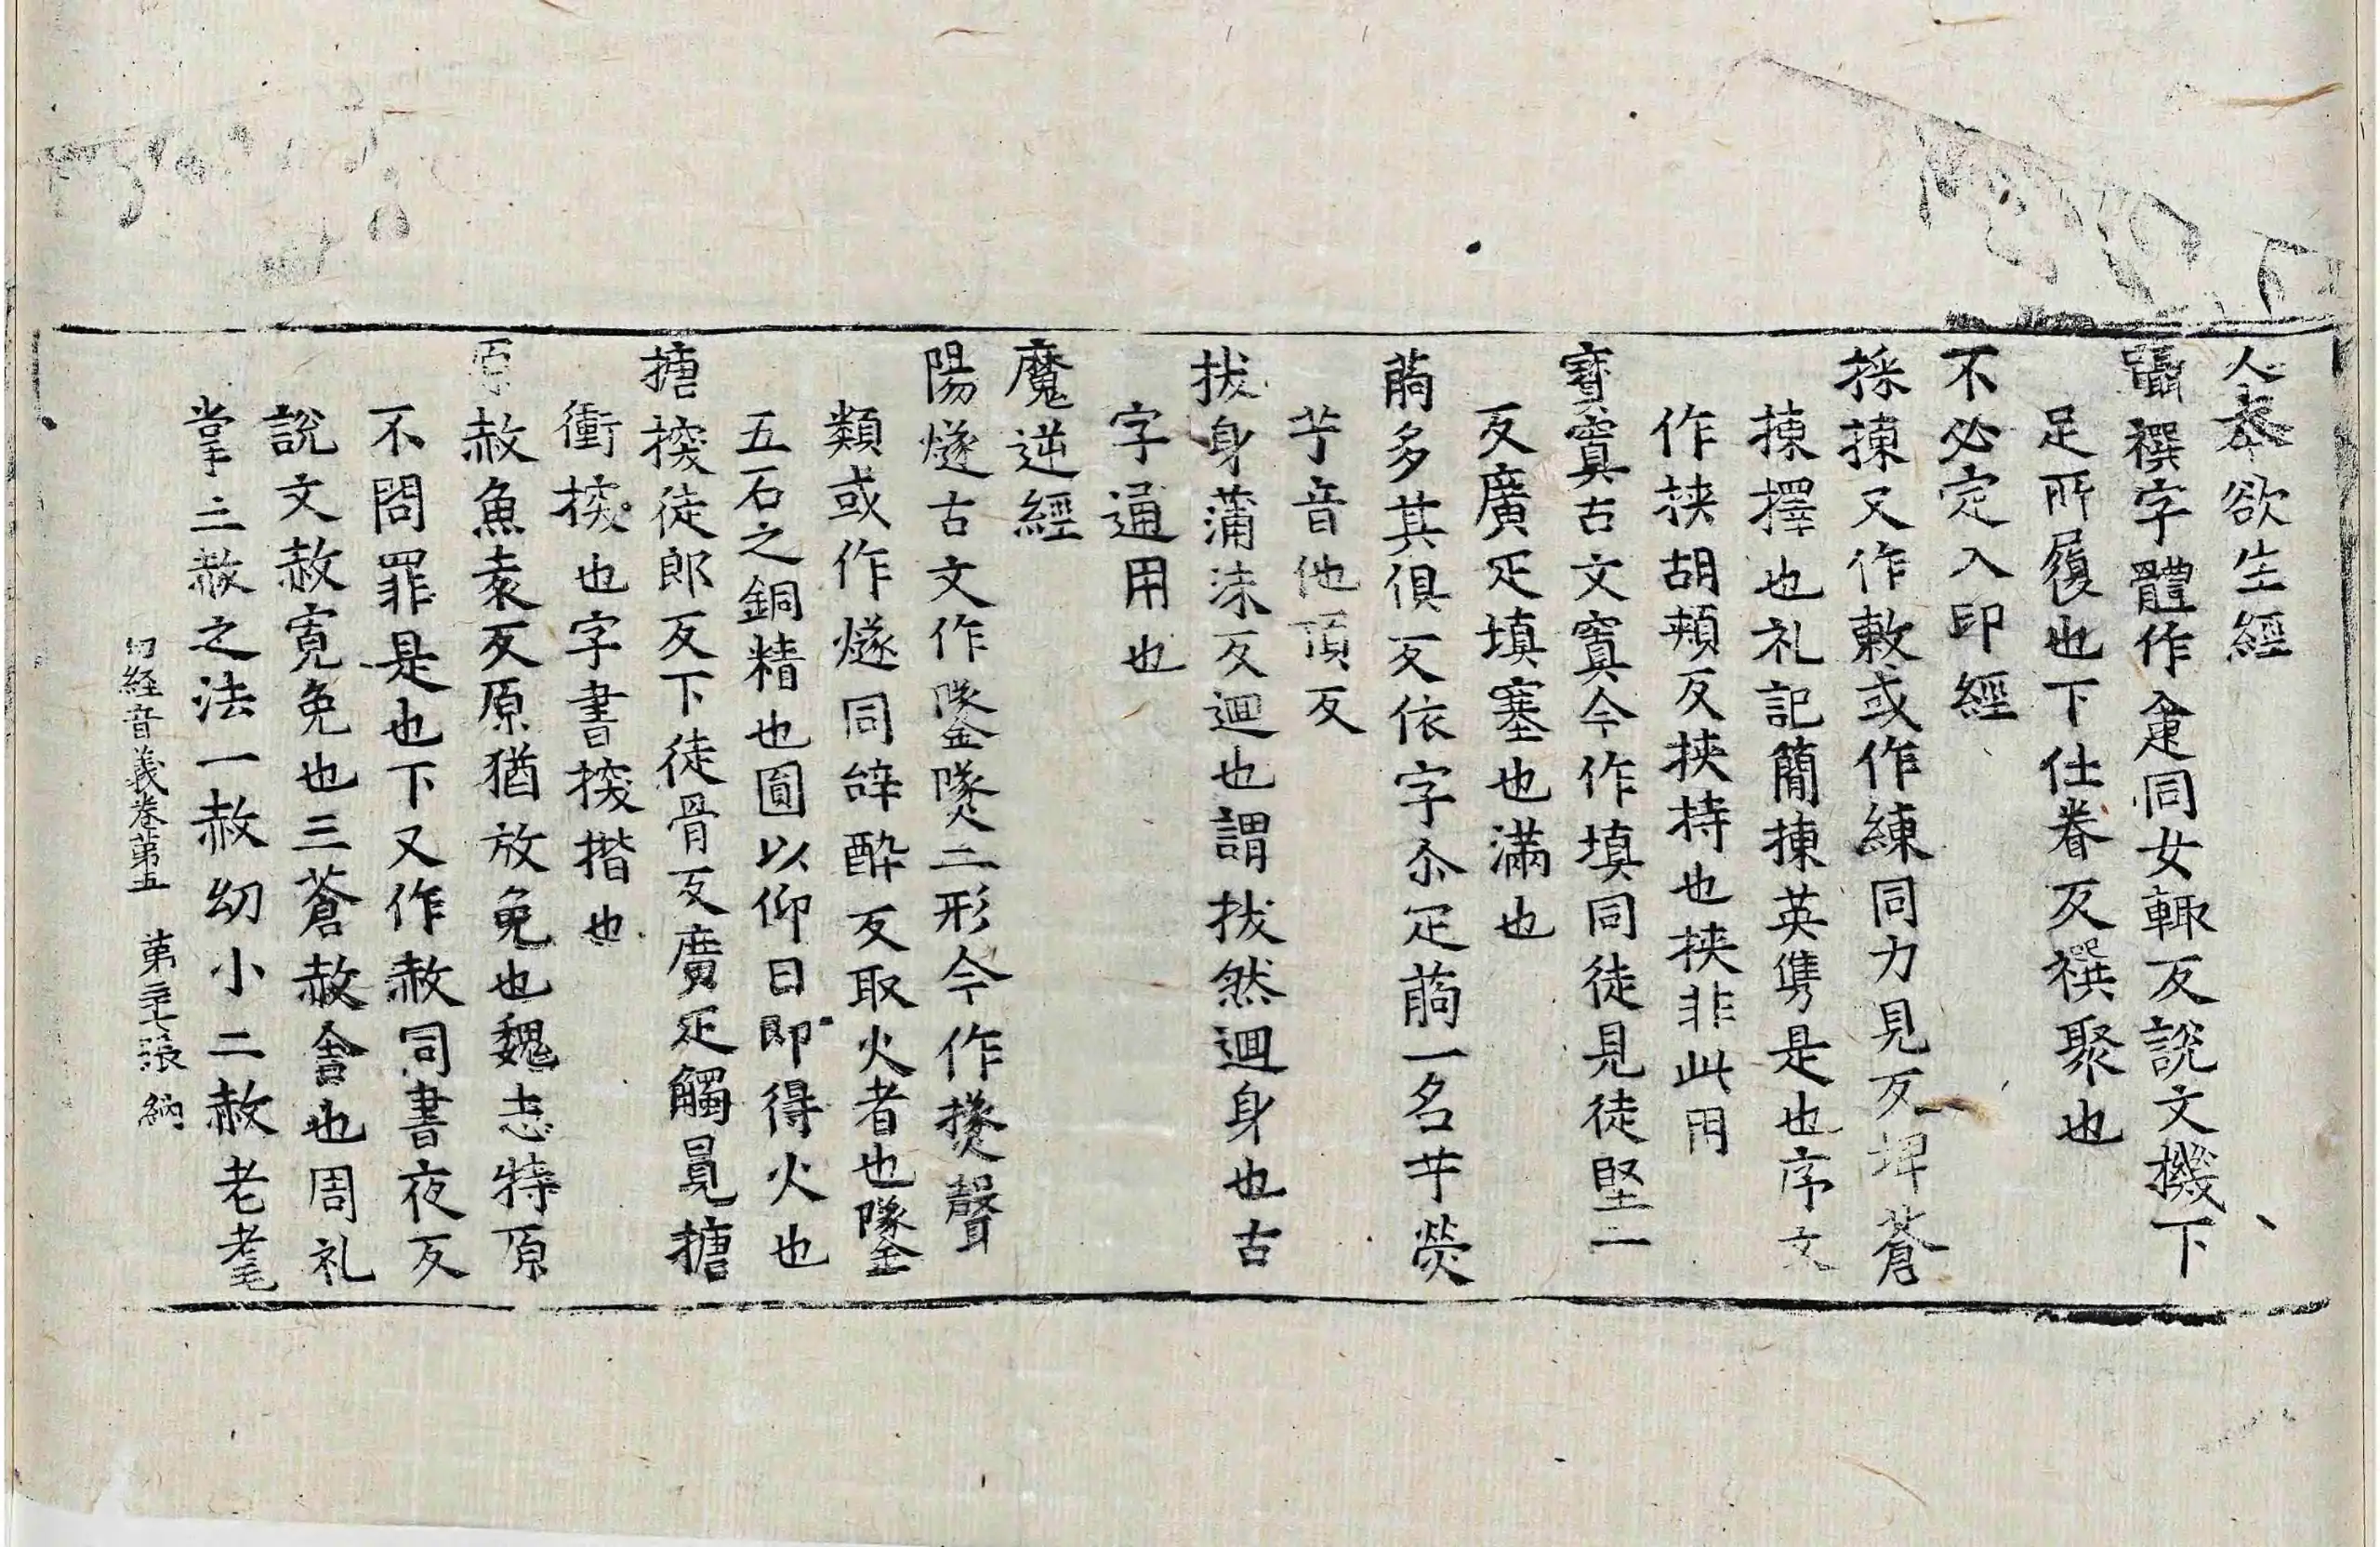 人本欲生經
躡襈字體作疌同女輒反説文機下
足所履也下仕眷反襈聚也
不必定入印經
採揀又作敕或作練同力見反埤蒼
揀擇也礼記簡揀英雋是也序文
作挾胡頰反挾持也挾非此用
寶窴古文窴今作填同徒見徒堅二
反廣疋填塞也滿也
萠多其俱反依字尒疋萠一名芐熒
芐音他頂反
拔身蒲沫反迴也謂拔然迴身也古
字通用也
魔逆經
陽燧古文作鐆㷂二形今作㸂聲
類或作燧同辝醉反取火者也鐆
五石之銅精也圓以仰日即得火也
搪揬徒郎反下徒骨反廣疋觸冒搪
衝揬也字書揬揩也
原赦魚袁反原猶放免也魏志特原
不問罪是也下又作赦同書夜反
説文赦寬免也三蒼赦舍也周礼
掌三赦之法一赦幼小二赦老耄
切経音義卷第五 第三十七張 納